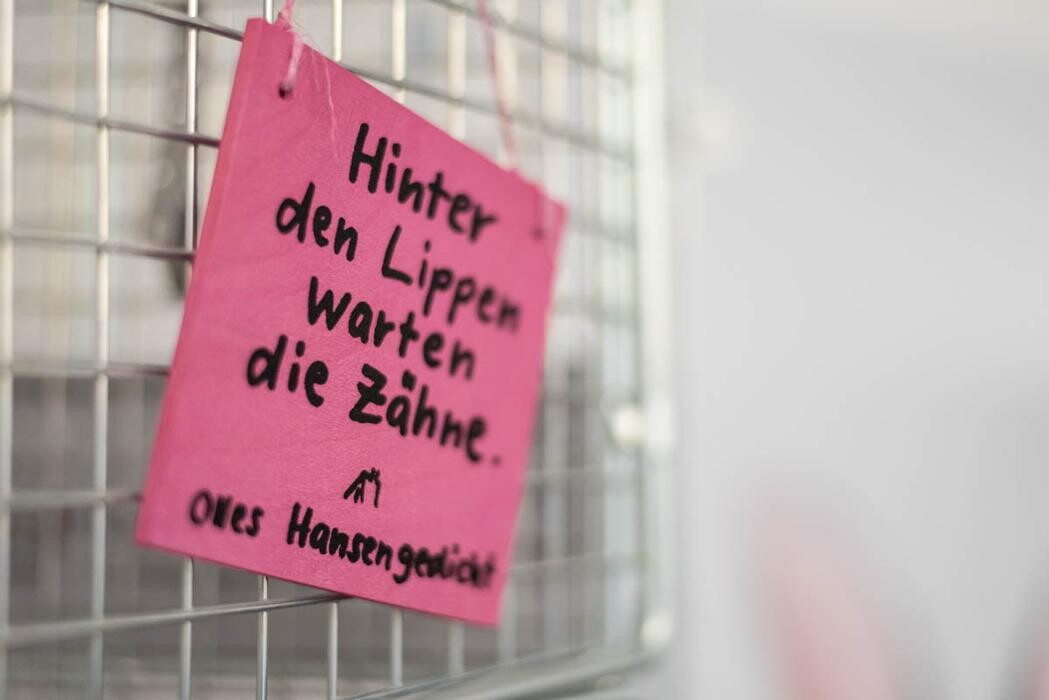 Hinter
den Lippen
warten
die Zähne.
Olles Hansengedicht